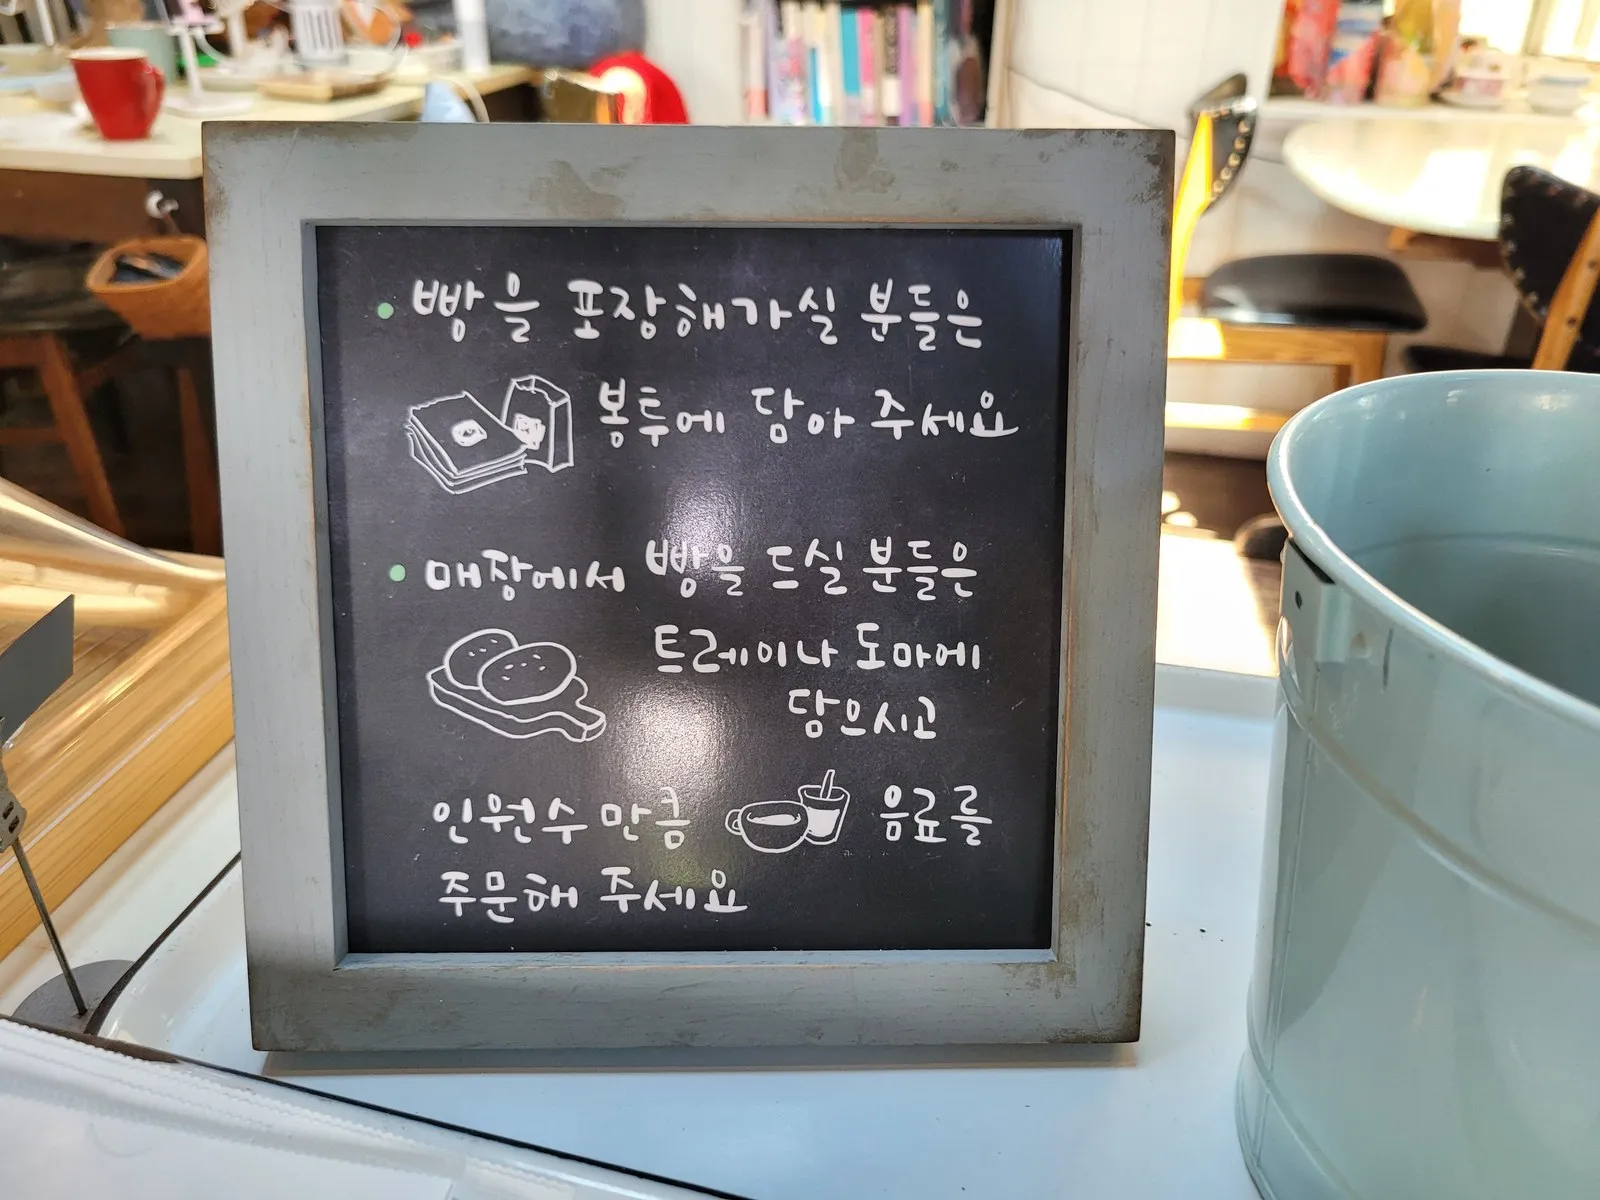 • 빵을 포장해가실 분들은
봉투에 담아 주세요
• 매장에서 빵을 드실 분들은
트레이나 도마에
담으시고
인원수 만큼 음료를
주문해 주세요